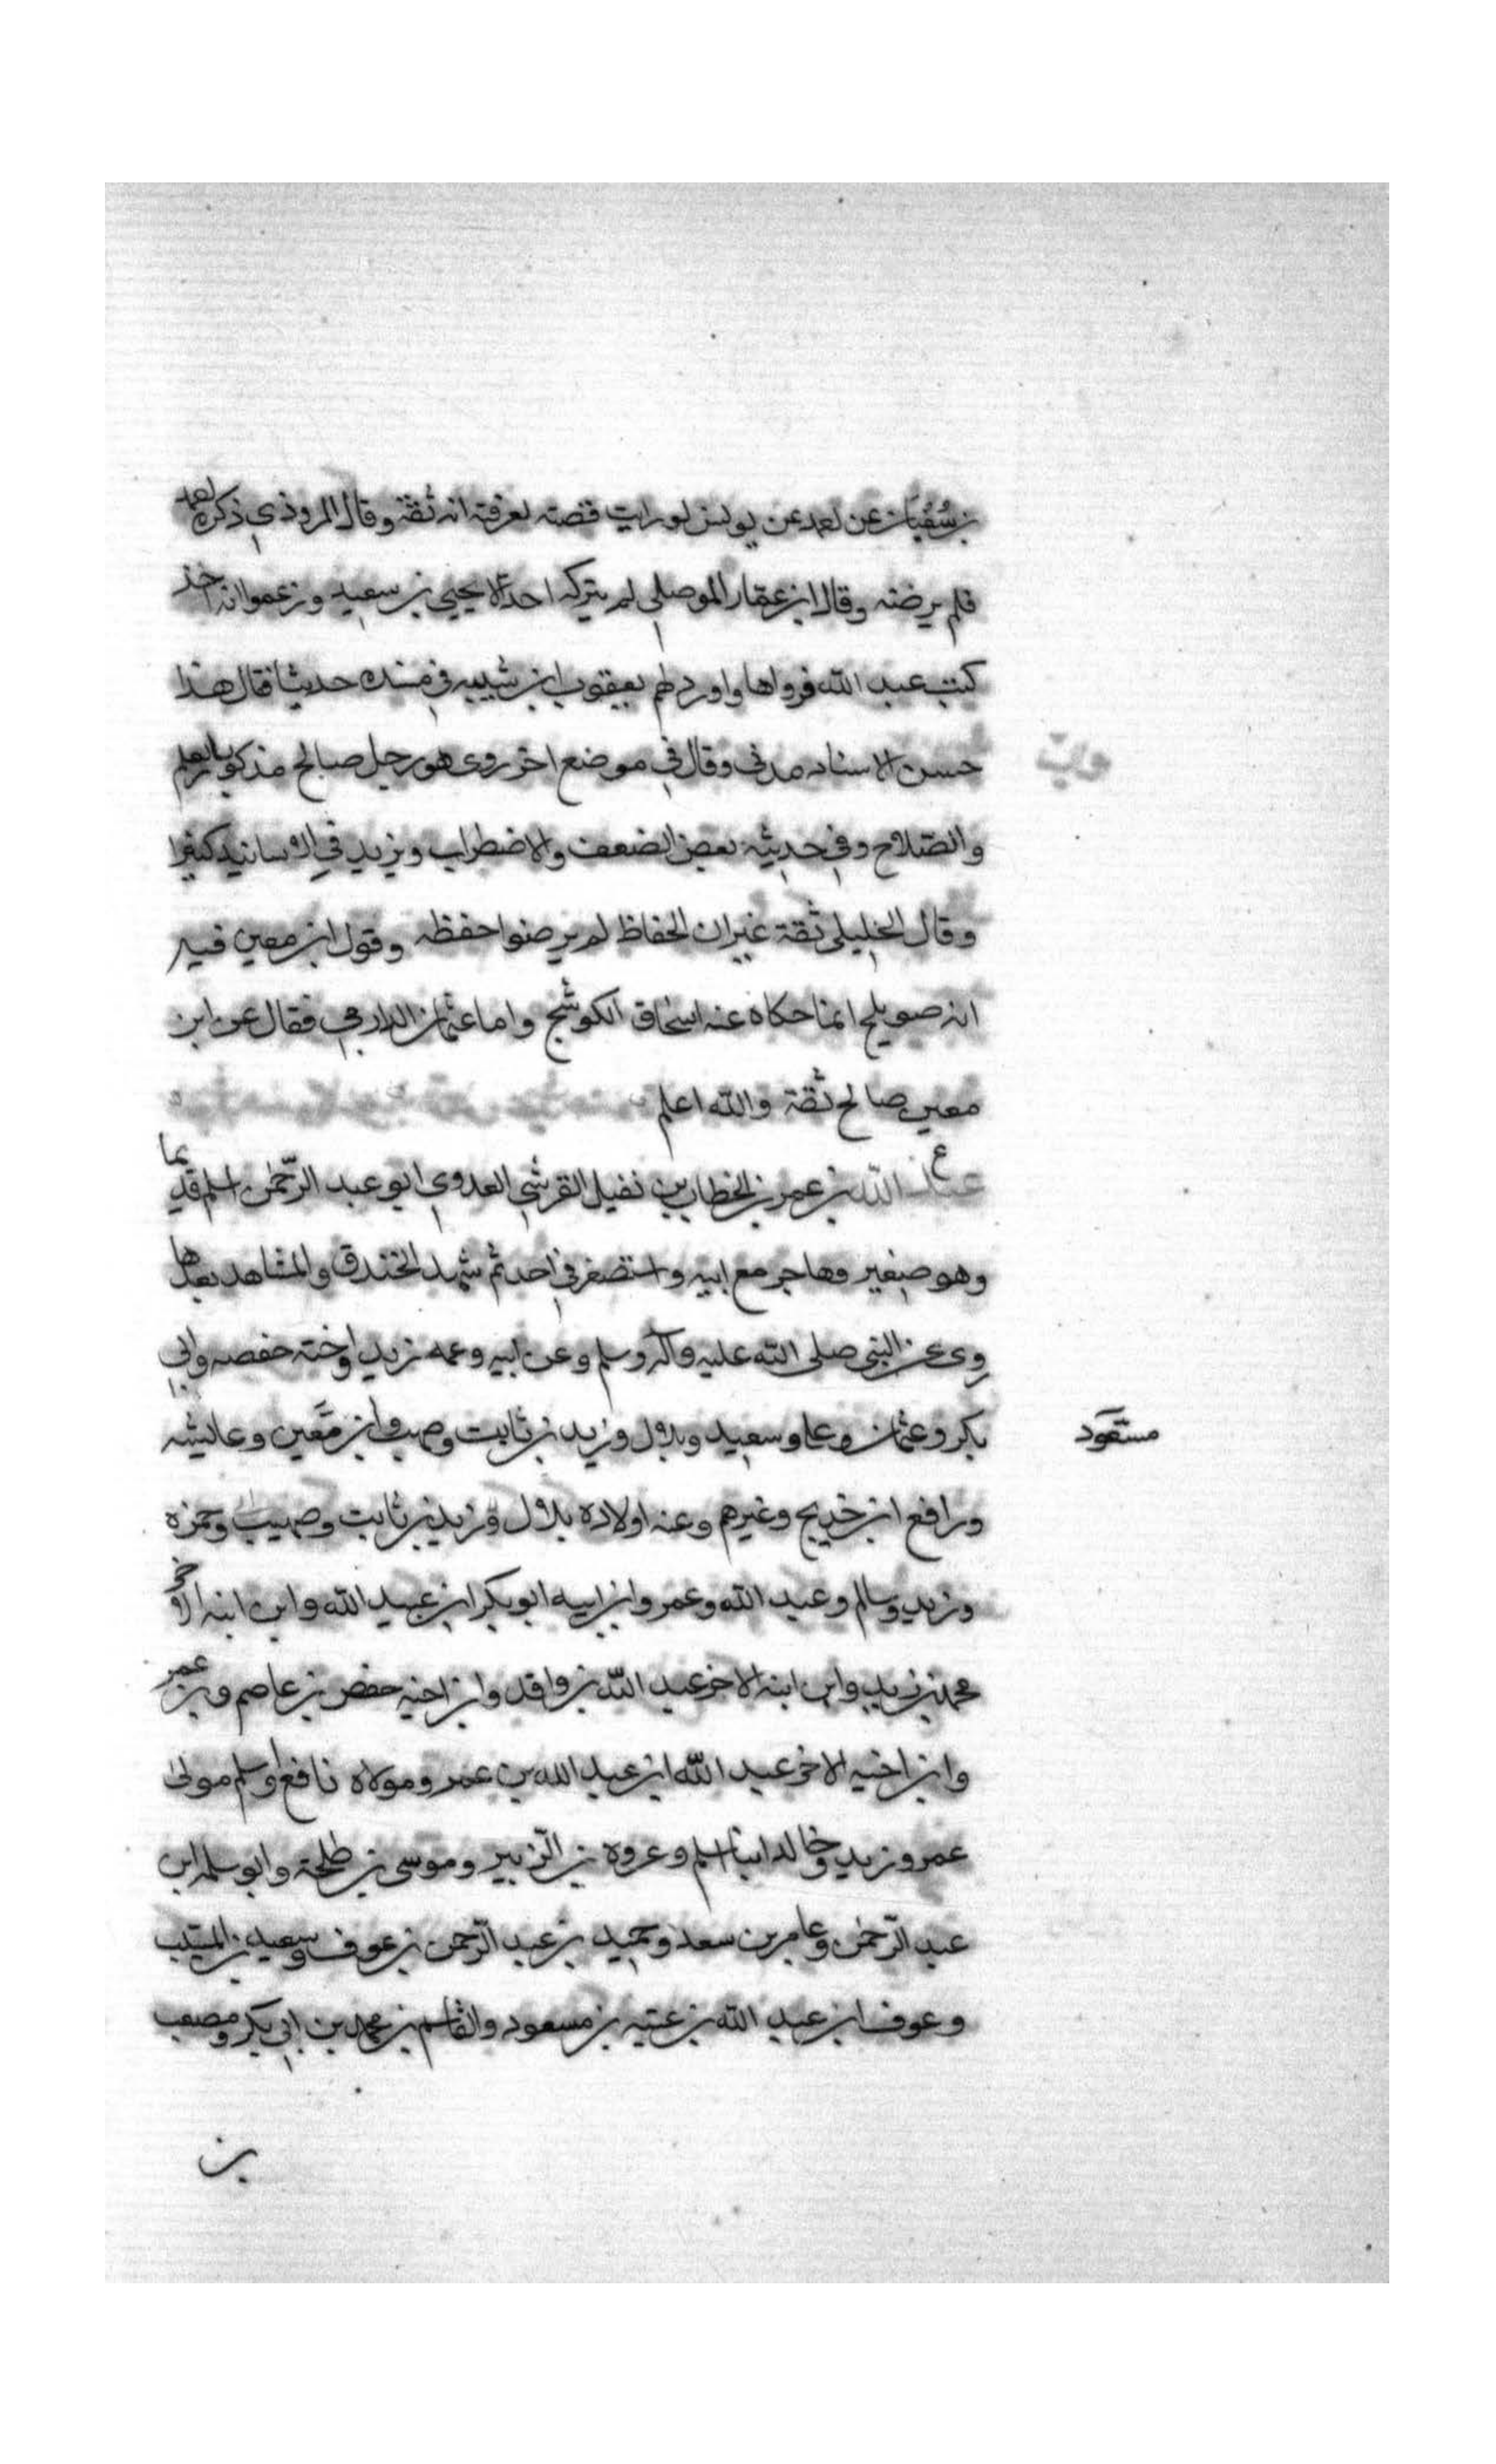 بن سفيان عن لعمد عن يونس لو رايت قصته لعرفته انه ثقة وقال المروذي ذكره لعمد
فلم يرضه وقال ابن عمار الموصلي لم يتركه احد الا يحيى بن سعيد وزعموا انه اخذ
كتب عبد الله فرواها واورد لهم يعقوب ابن شيبه في مسنده حديثا فقال هذا
حسن الاسناد مدني وقال في موضع اخر روى هو رجل صالح مذكور بالعلم
والصلاح وفي حديثه بعض الضعف والاضطراب ويزيد في الاسانيد كثيرا
وقال الخليلي ثقة غير ان الحفاظ لم يرضوا حفظه وقول ابن معين فيه
انه صويلح انما حكاه عنه اسحاق الكوشج واما عثمان الدارمي فقال عن ابن
معين صالح ثقة والله اعلم
ع
عبد الله بن عمر بن الخطاب بن نفيل القرشي العدوي ابو عبد الرحمن اسلم قديما
وهو صغير وهاجر مع ابيه واستصغر في احد ثم شهد الخندق والمشاهد بعدها
روى عن النبي صلى الله عليه وآله وسلم وعن ابيه وعمه زيد واخته حفصه وابي
بكر وعثمان وعلي وسعيد وبلال وزيد بن ثابت وصهيب وابن معين وعايشه
مسعود
ورافع ابن خديج وغيرهم وعنه اولاده بلال وزيد بن ثابت وصهيب وحمزه
وزيد وسالم وعبد الله وعمر وابن ابيه ابو بكر ابن عبيد الله وابن ابنه الاخر
محمد بن زيد وابن ابنه الاخر عبد الله بن واقد وابن اخيه حفص بن عاصم وبن عمر
وابن اخيه الاخر عبد الله ابن عبيد الله بن عمر ومولاه نافع واسلم مولى
عمر وزيد وخالد ابنا اسلم وعروه بن الزبير وموسى بن طلحة وابو سلمه ابن
عبد الرحمن وعامر بن سعد وحميد بن عبد الرحمن بن عوف وسعيد بن المسيب
وعوف ابن عبد الله بن عتبه بن مسعود والقاسم بن محمد بن ابي بكر ومصعب
بن